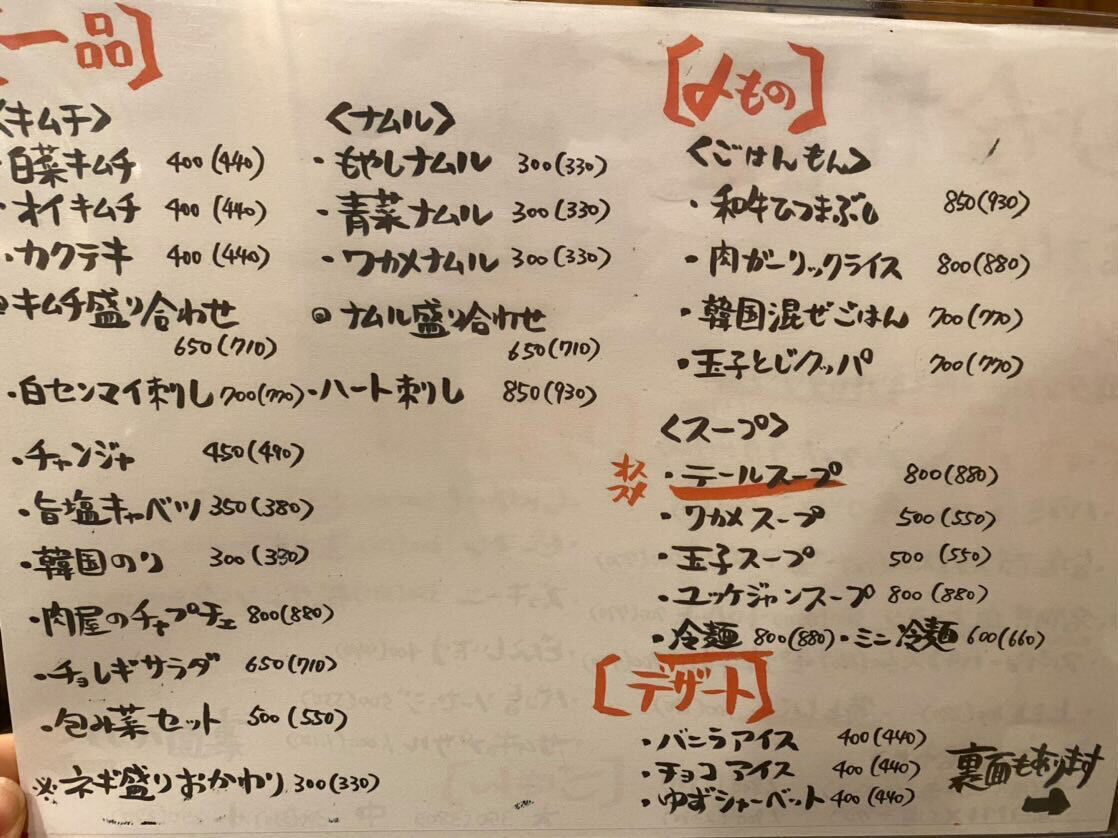 [一品]
〈キムチ〉
・白菜キムチ 400(440)
・オイキムチ 400(440)
・カクテキ 400(440)
◎キムチ盛り合わせ
650(710)
〈ナムル〉
・もやしナムル 300(330)
・青菜ナムル 300(330)
・ワカメナムル 300(330)
◎ナムル盛り合わせ
650(710)
・白センマイ刺し 700(770)・ハート刺し 850(930)
・チャンジャ 450(490)
・旨塩キャベツ 350(380)
・韓国のり 300(330)
・肉屋のチャプチェ 800(880)
・チョレギサラダ 650(710)
・包み菜セット 500(550)
※ネギ盛りおかわり 300(330)
[〆もの]
〈ごはんもん〉
・和牛ひつまぶし 850(930)
・肉ガーリックライス 800(880)
・韓国混ぜごはん 700(770)
・玉子とじクッパ 700(770)
〈スープ〉
オス
スメ
・テールスープ 800(880)
・ワカメスープ 500(550)
・玉子スープ 500(550)
・ユッケジャンスープ 800(880)
・冷麺 800(880)・ミニ冷麺 600(660)
[デザート]
・バニラアイス 400(440)
・チョコアイス 400(440)
・ゆずシャーベット 400(440)
裏面もあります
➡